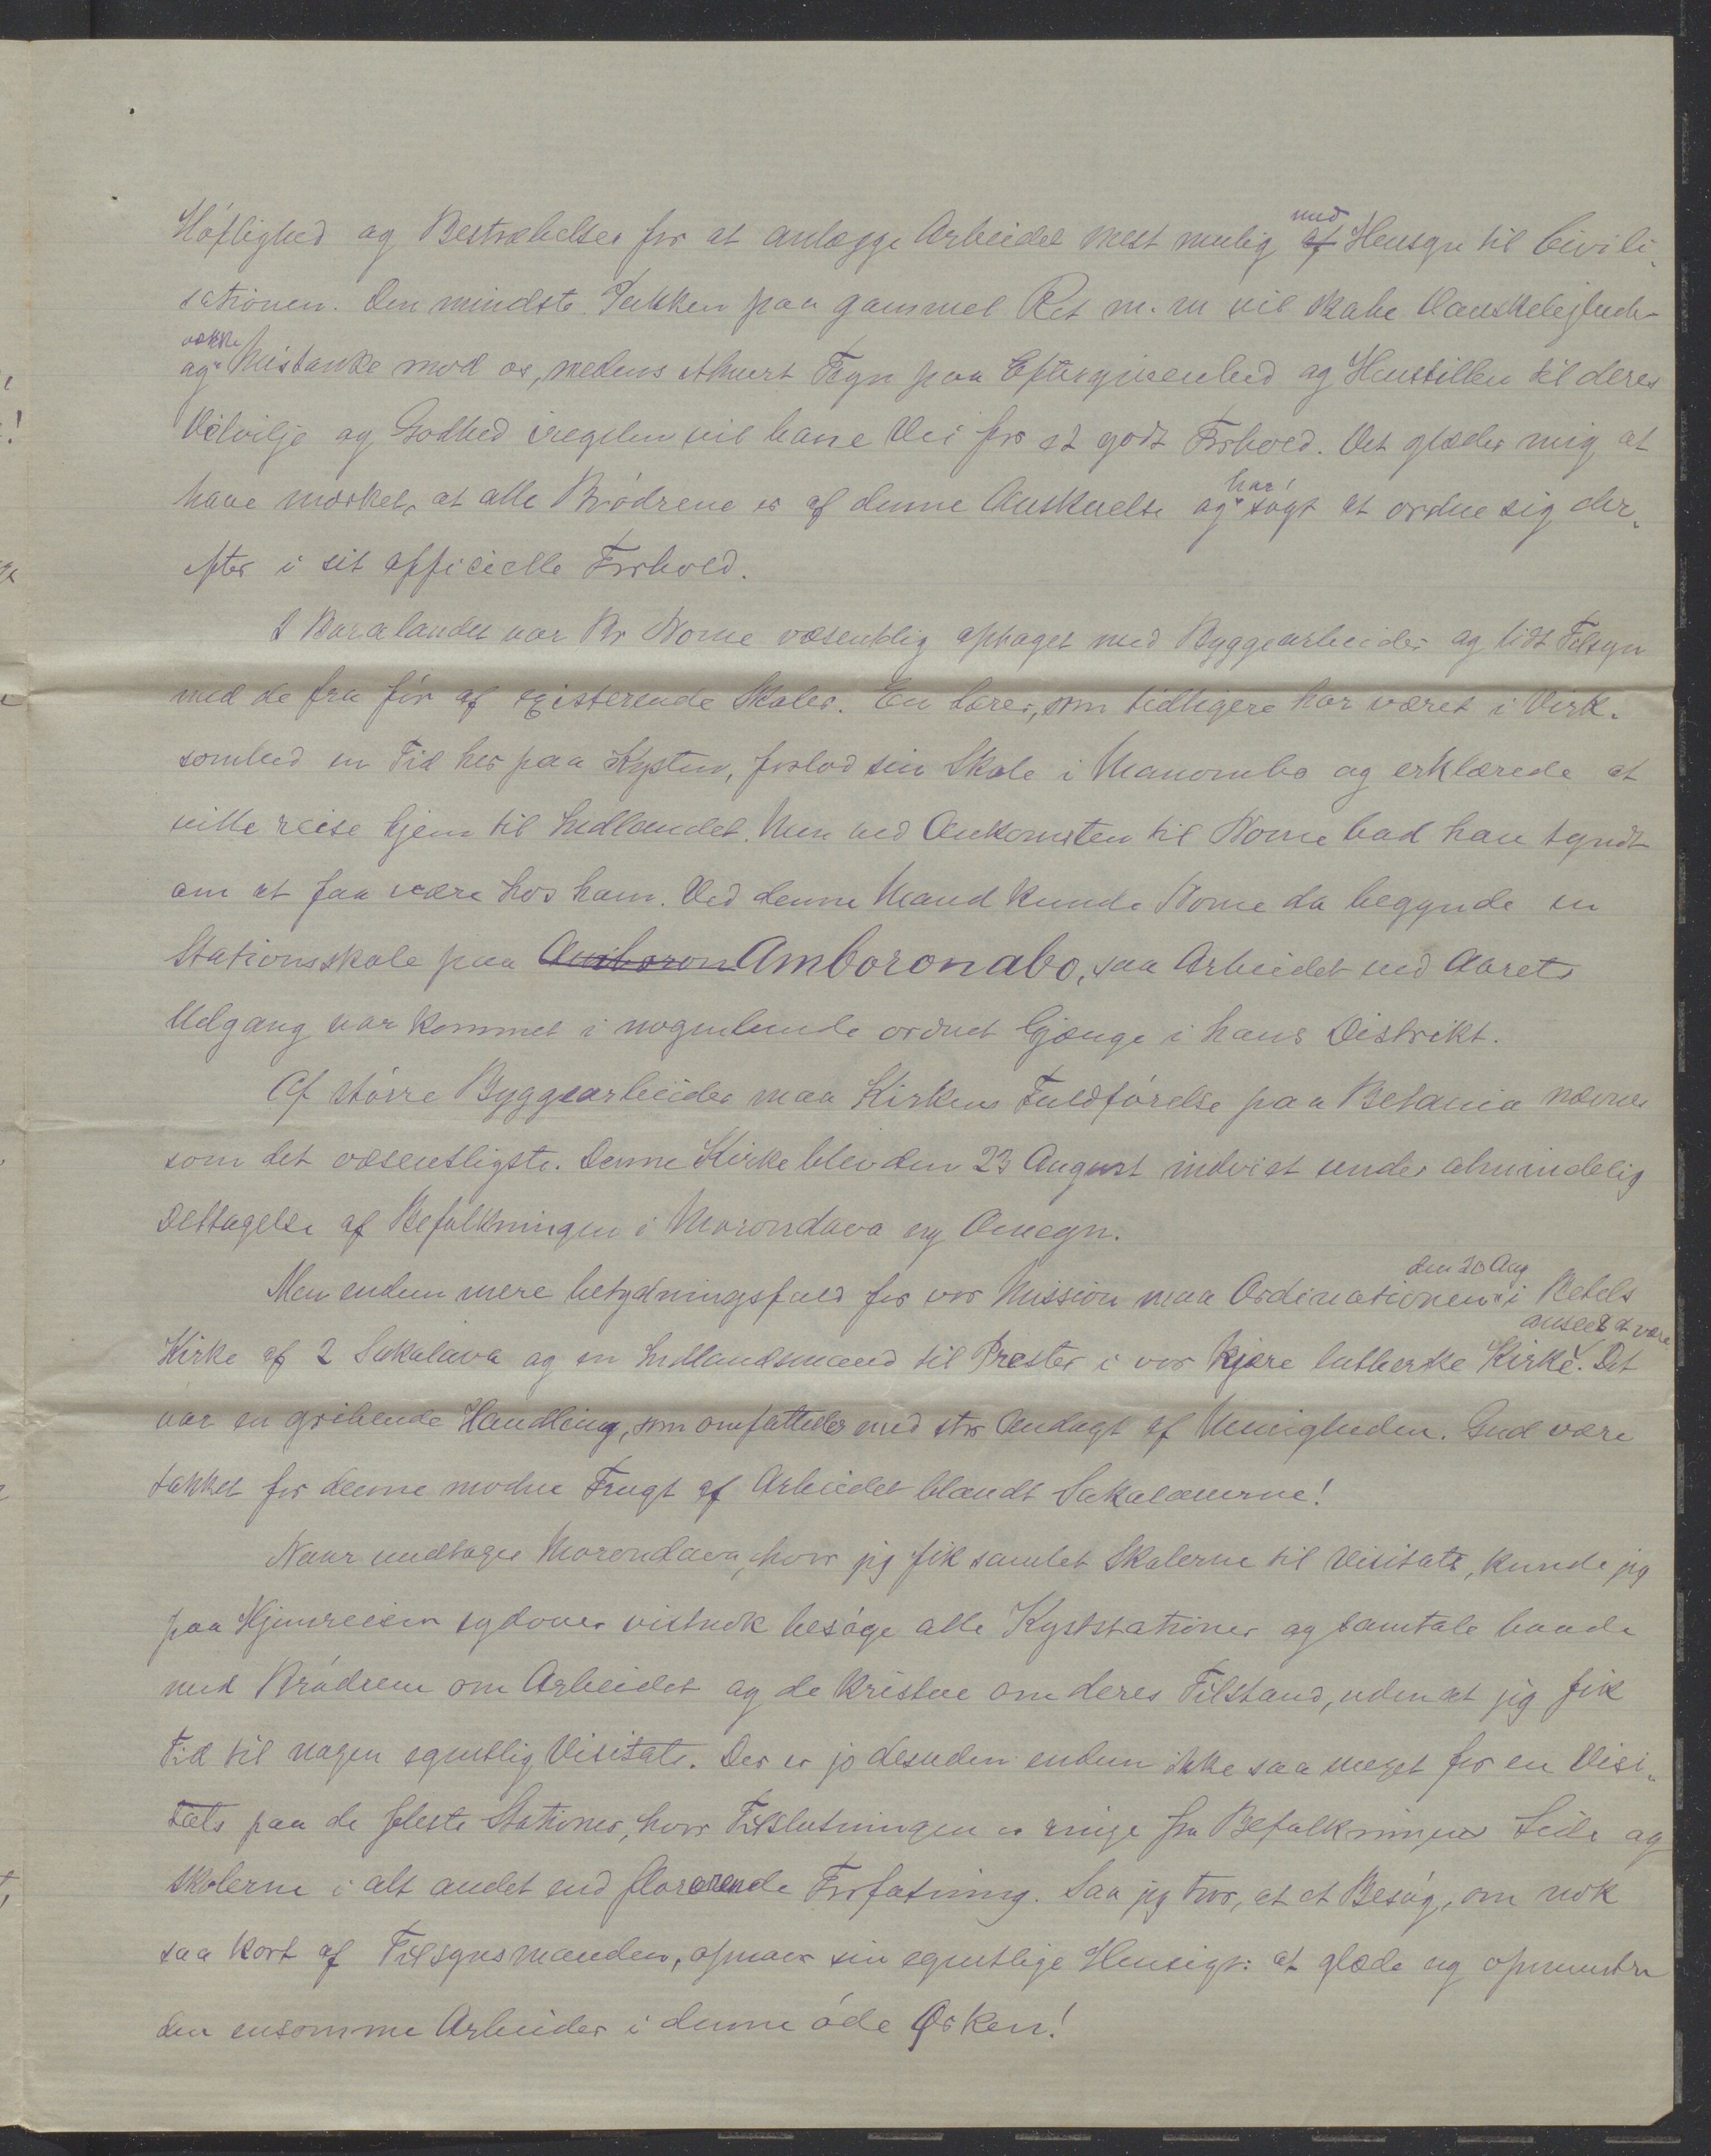 Höflighed og Bestræbelser for at anlægge Arbeidet mest mulig af med Hensyn til Civili-
sationen. Den mindste Pukken paa gammel Ret m. m vil skabe Vanskeligheder
og vække Mistanke mod os, medens ethvert Tegn paa Eftergivenhed og Henstillen til deres
Velvilje og Godhed iregelen vil bane Vei for et godt Forhold. Det glæder mig at
have mærket, at alle Brödrene er af denne Anskuelse og har sögt at ordne sig der-
efter i sit officielle Forhold.
I Baralandet var Br Nome væsentlig optaget med Byggearbeider og lidt Tilsyn
med de fra för af existerende Skoler. En Lærer, som tidligere har været i Virk-
somhed en Tid her paa Kysten, forlod sin Skole i Manombo og erklærede at
ville reise hjem til Indlandet. Men ved Ankomsten til Nome bad han tyndt
om at faa være hos ham. Ved denne Mand kunde Nome da begynde en
Stationsskole paa Amboron Amboronabo, saa Arbeidet ved Aarets
Udgang var kommet i nogenlunde ordnet Gjænge i hans Distrikt.
Af större Byggearbeider maa Kirkens Fuldförelse paa Betania nævnes
som det væsentligste. Denne Kirke blev den 23 August indviet under almindelig
Deltagelse af Befolkningen i Morondava og Omegn.
Men endnu mere betydningsfuld for vor Mission maa Ordinationen den 20 Aug i Betels
Kirke af 2 Sakalava og en Indlandsmand til Prester i vor kjære lutherske Kirke ansees at være. Det
var en gribende Handling, som omfattedes med stor Andagt af Menigheden. Gud være
takket for denne modne Frugt af Arbeidet blandt Sakalaverne!
Naar undtages Morondava, hvor jeg fik samlet Skolerne til Visitats, kunde jeg
paa Hjemreisen sydover vistnok besöge alle Kyststationer og samtale baade
med Brödrene om Arbeidet og de kristne om deres Tilstand, uden at jeg fik
Tid til nogen egentlig Visitats. Der er jo desuden endnu ikke saa meget for en Visi-
tats paa de fleste Stationer, hvor Tilslutningen er ringe fra Befolkningens Side og
Skolerne i alt andet end florerende Forfatning. Saa jeg tror, at et Besög, om nok
saa kort af Tilsynsmanden, opnaar sin egentlige Hensigt: at glæde og opmuntre
den ensomme Arbeider i denne öde Ørken!